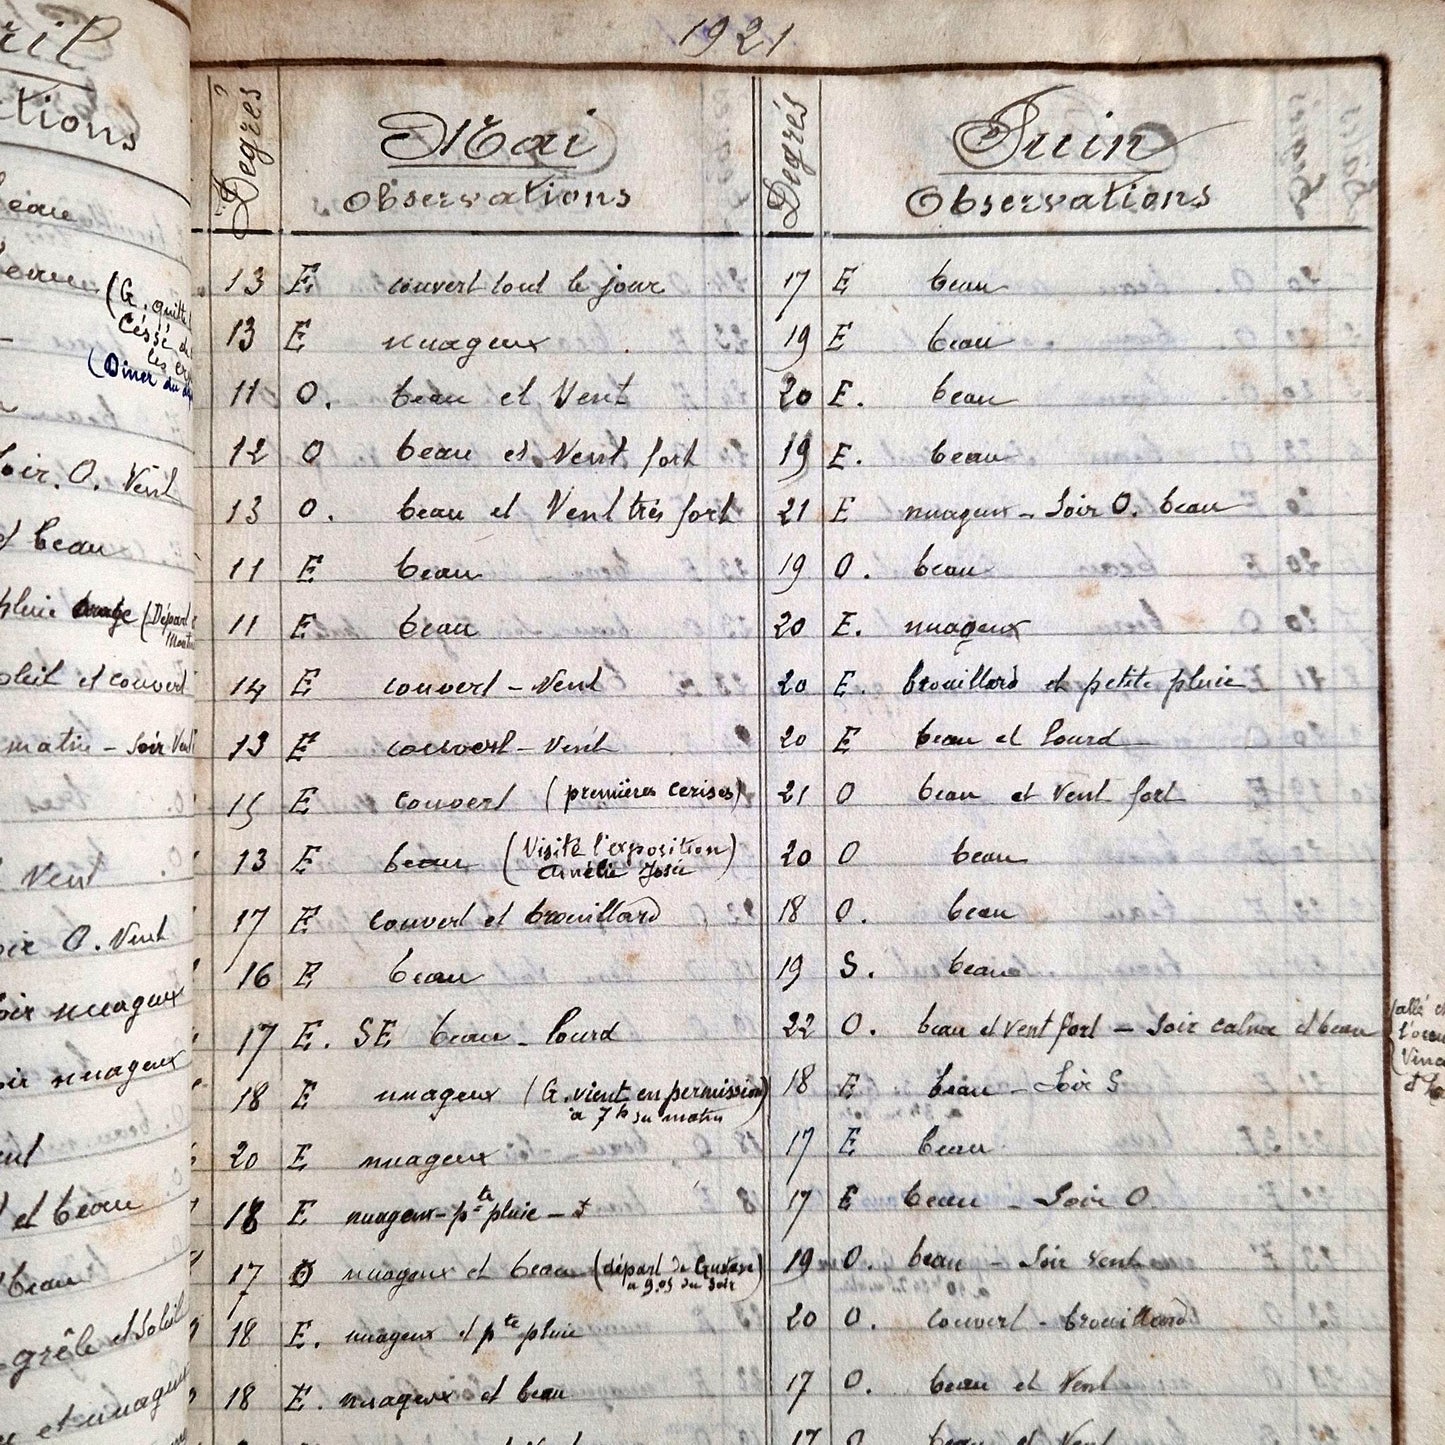 1921
Degrés
Mai
Observations
13 E couvert tout le jour
13 E nuageux
11 O. beau et Vent
12 O beau et Vent fort
13 O. beau et Vent très fort
11 E beau
11 E beau
14 E couvert - Vent
13 E couvert - Vent
15 E couvert (premières cerises)
13 E beau (Visité l'exposition
Amélie José)
17 E couvert et brouillard
16 E beau
17 E. SE beau - lourd
18 E nuageux (G. vient en permission)
à 7h du matin
20 E nuageux
18 E nuageux - pte pluie -
17 O nuageux et beau (départ de Gustave)
à 9.05 du soir
18 E. nuageux et pte pluie
18 E. nuageux et beau
Degrés
Juin
Observations
17 E beau
19 E beau
20 E. beau
19 E. beau
21 E nuageux - Soir O. beau
19 O. beau
20 E. nuageux
20 E. brouillard et petite pluie
20 E beau et lourd
21 O beau et Vent fort
20 O beau
18 O. beau
19 S. beau
22 O. beau et vent fort - Soir calme et beau
(allé
18 E beau - Soir S
17 E beau
17 E beau - Soir O.
19 O. beau - Soir vent
20 O. couvert - brouillard
17 O. beau et Vent
17 O beau et Vent
ril
ctions
beau
beau (G. quitte
Céssé de
les
(Diner du
Soir. O. Vent
et beau
pluie (Départ
soleil et couvert
matin - Soir Vent
Vent
Soir O. Vent
Soir nuageux
Soir nuageux
et beau
beau
grêle et Soleil
et nuageux